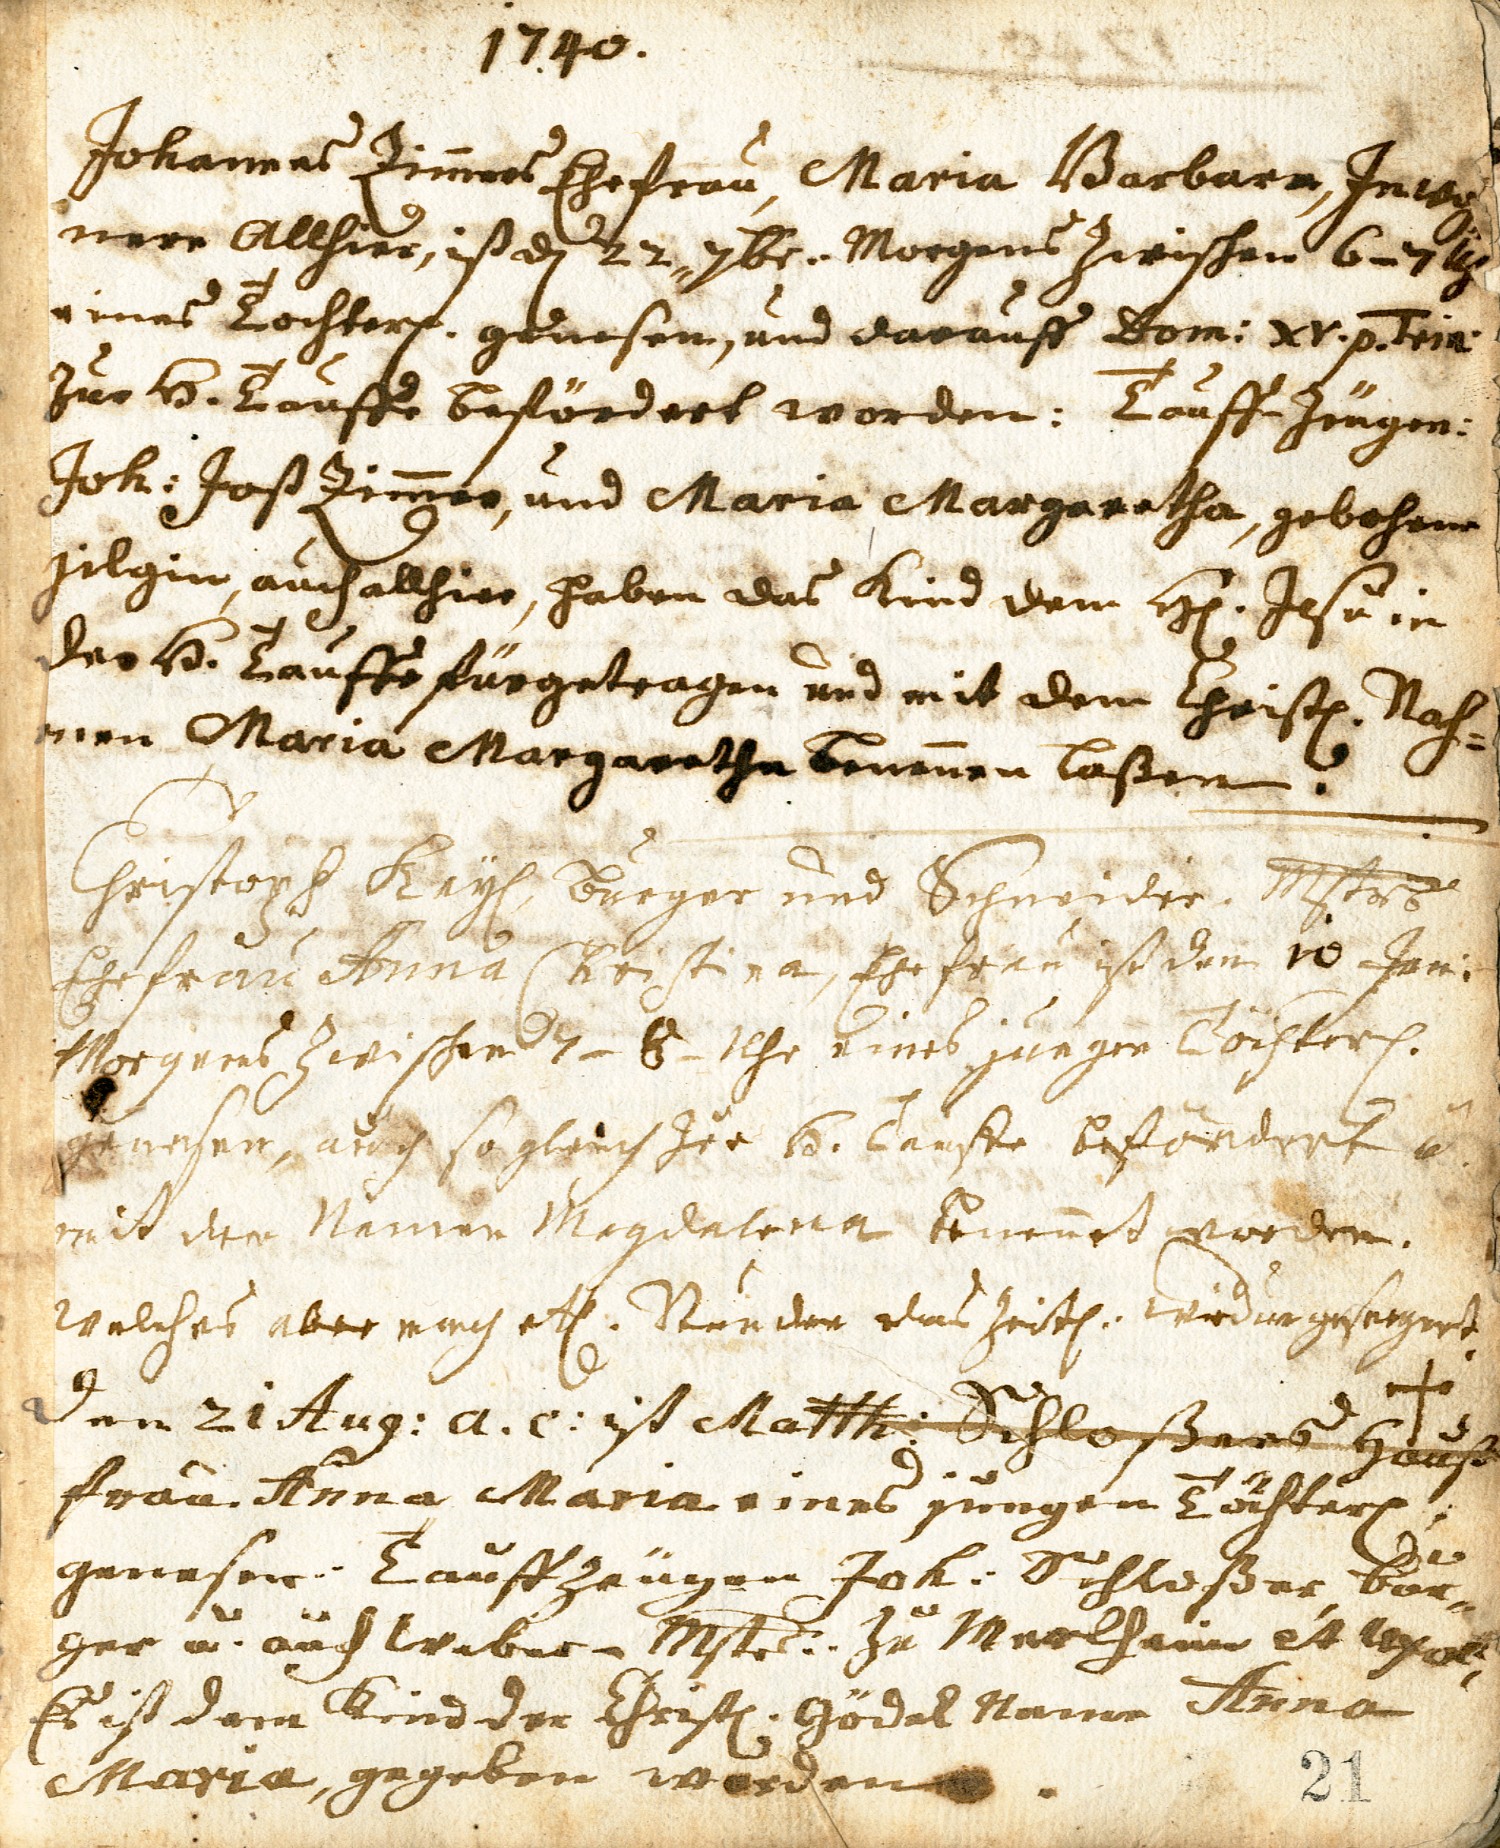 1740.
Johannes Zim̄ers Ehefrau, Maria Barbara, Inwoh
nere Allhier, ist d 22 7br. Morgens Zwischen 6-7 Uhr
eines Tochterl. genesen, und darauff Dom: XV. p. Trin:
Zur H. Tauffe befördert worden: Tauff-Zeugen:
Joh: Jost Zim̄er, und Maria Margaretha, gebohrne
Jilgin, auch allhier, haben das Kind dem H. Jesu in
der H. Tauffe fürgetragen und mit dem Christl. Nah=
men Maria Margaretha benen̄en laßen.
Christoph Bürger und Schneider. Mstrs
Ehefrau Anna Christina, Ehefrau ist den 10 Jan:
Morgens Zwischen 7-8-Uhr eines jungen Töchterl.
genesen, auch sogleich zur H. Tauffe befördert u.
mit den Namen Magdalena benen̄et worden.
welches aber nach etl. Stunden das Zeitl. wieder gesegnet.
Den 21 Aug: a. c: ist Matth: Schloßers Hauß
frau Anna Maria eines jungen Töchterl.
genesen: Tauffzeugen Joh: Schloßer, bür-
ger u. auch Weber-Mstr: zu Merlheim et uxor,
Es ist dem Kind der Christl. Gödel Name Anna
Maria, gegeben worden.
21